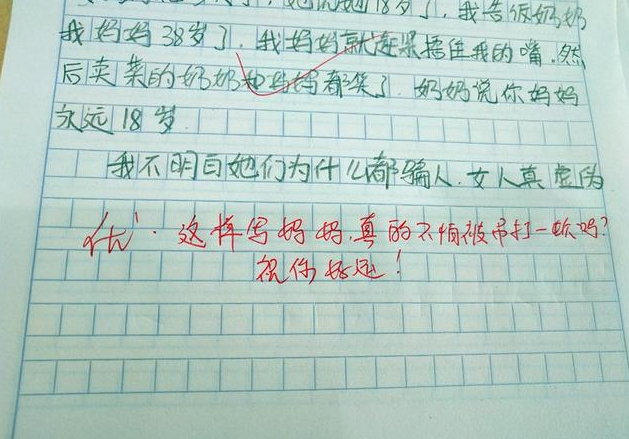 她说她18岁了,我告诉奶奶
我妈妈38岁了.我妈妈就赶紧捂住我的嘴.然
后卖菜的奶奶和妈妈都笑了.奶奶说你妈妈
永远18岁.
我不明白她们为什么都骗人.女人真虚伪
优.这样写妈妈,真的不怕被吊打一顿吗?
祝你好运!